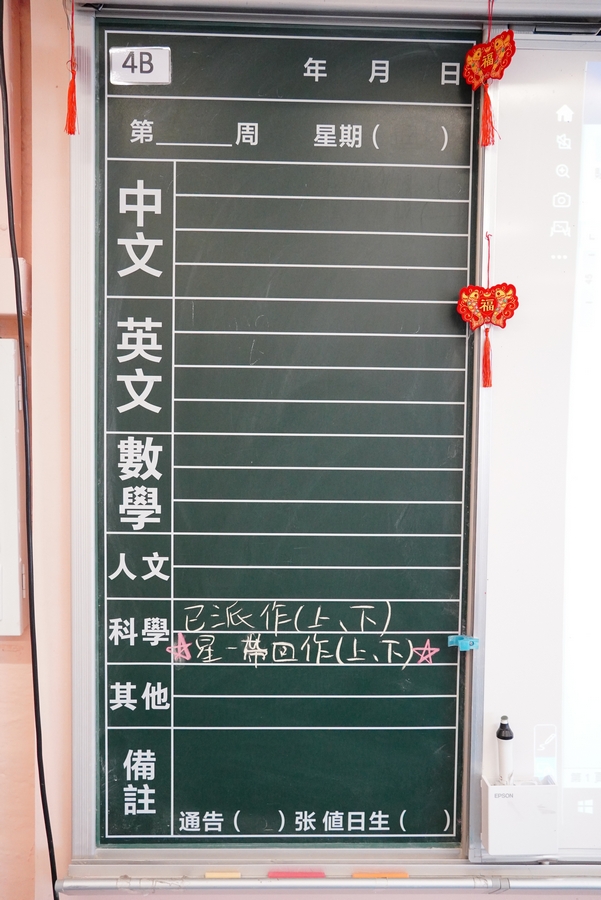 4B
年 月 日
第______周 星期( )
中文
英文
數學
人文
科學
已派作(上、下)
☆星一帶回作(上、下)☆
其他
備註
通告( )张 值日生( )
福
福
EPSON